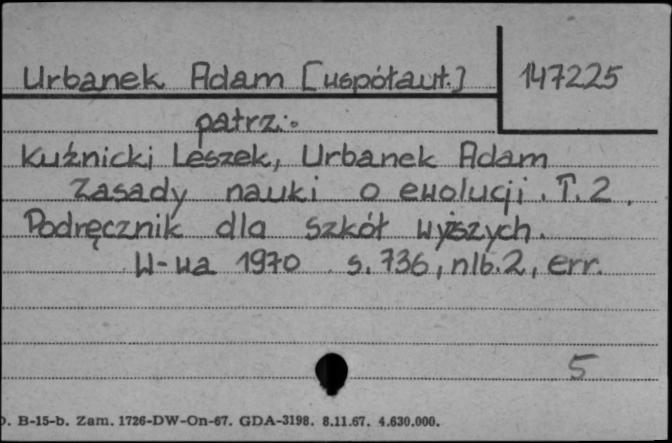 Urbanek Adam [współaut.] 147225
patrz:
Kuźnicki Leszek, Urbanek Adam
Zasady nauki o ewolucji. T. 2.
Podręcznik dla szkół wyższych.
W-wa 1970 s. 736, nlb. 2, err.
5
D. B-15-b. Zam. 1726-DW-On-67. GDA-3198. 8.11.67. 4.630.000.